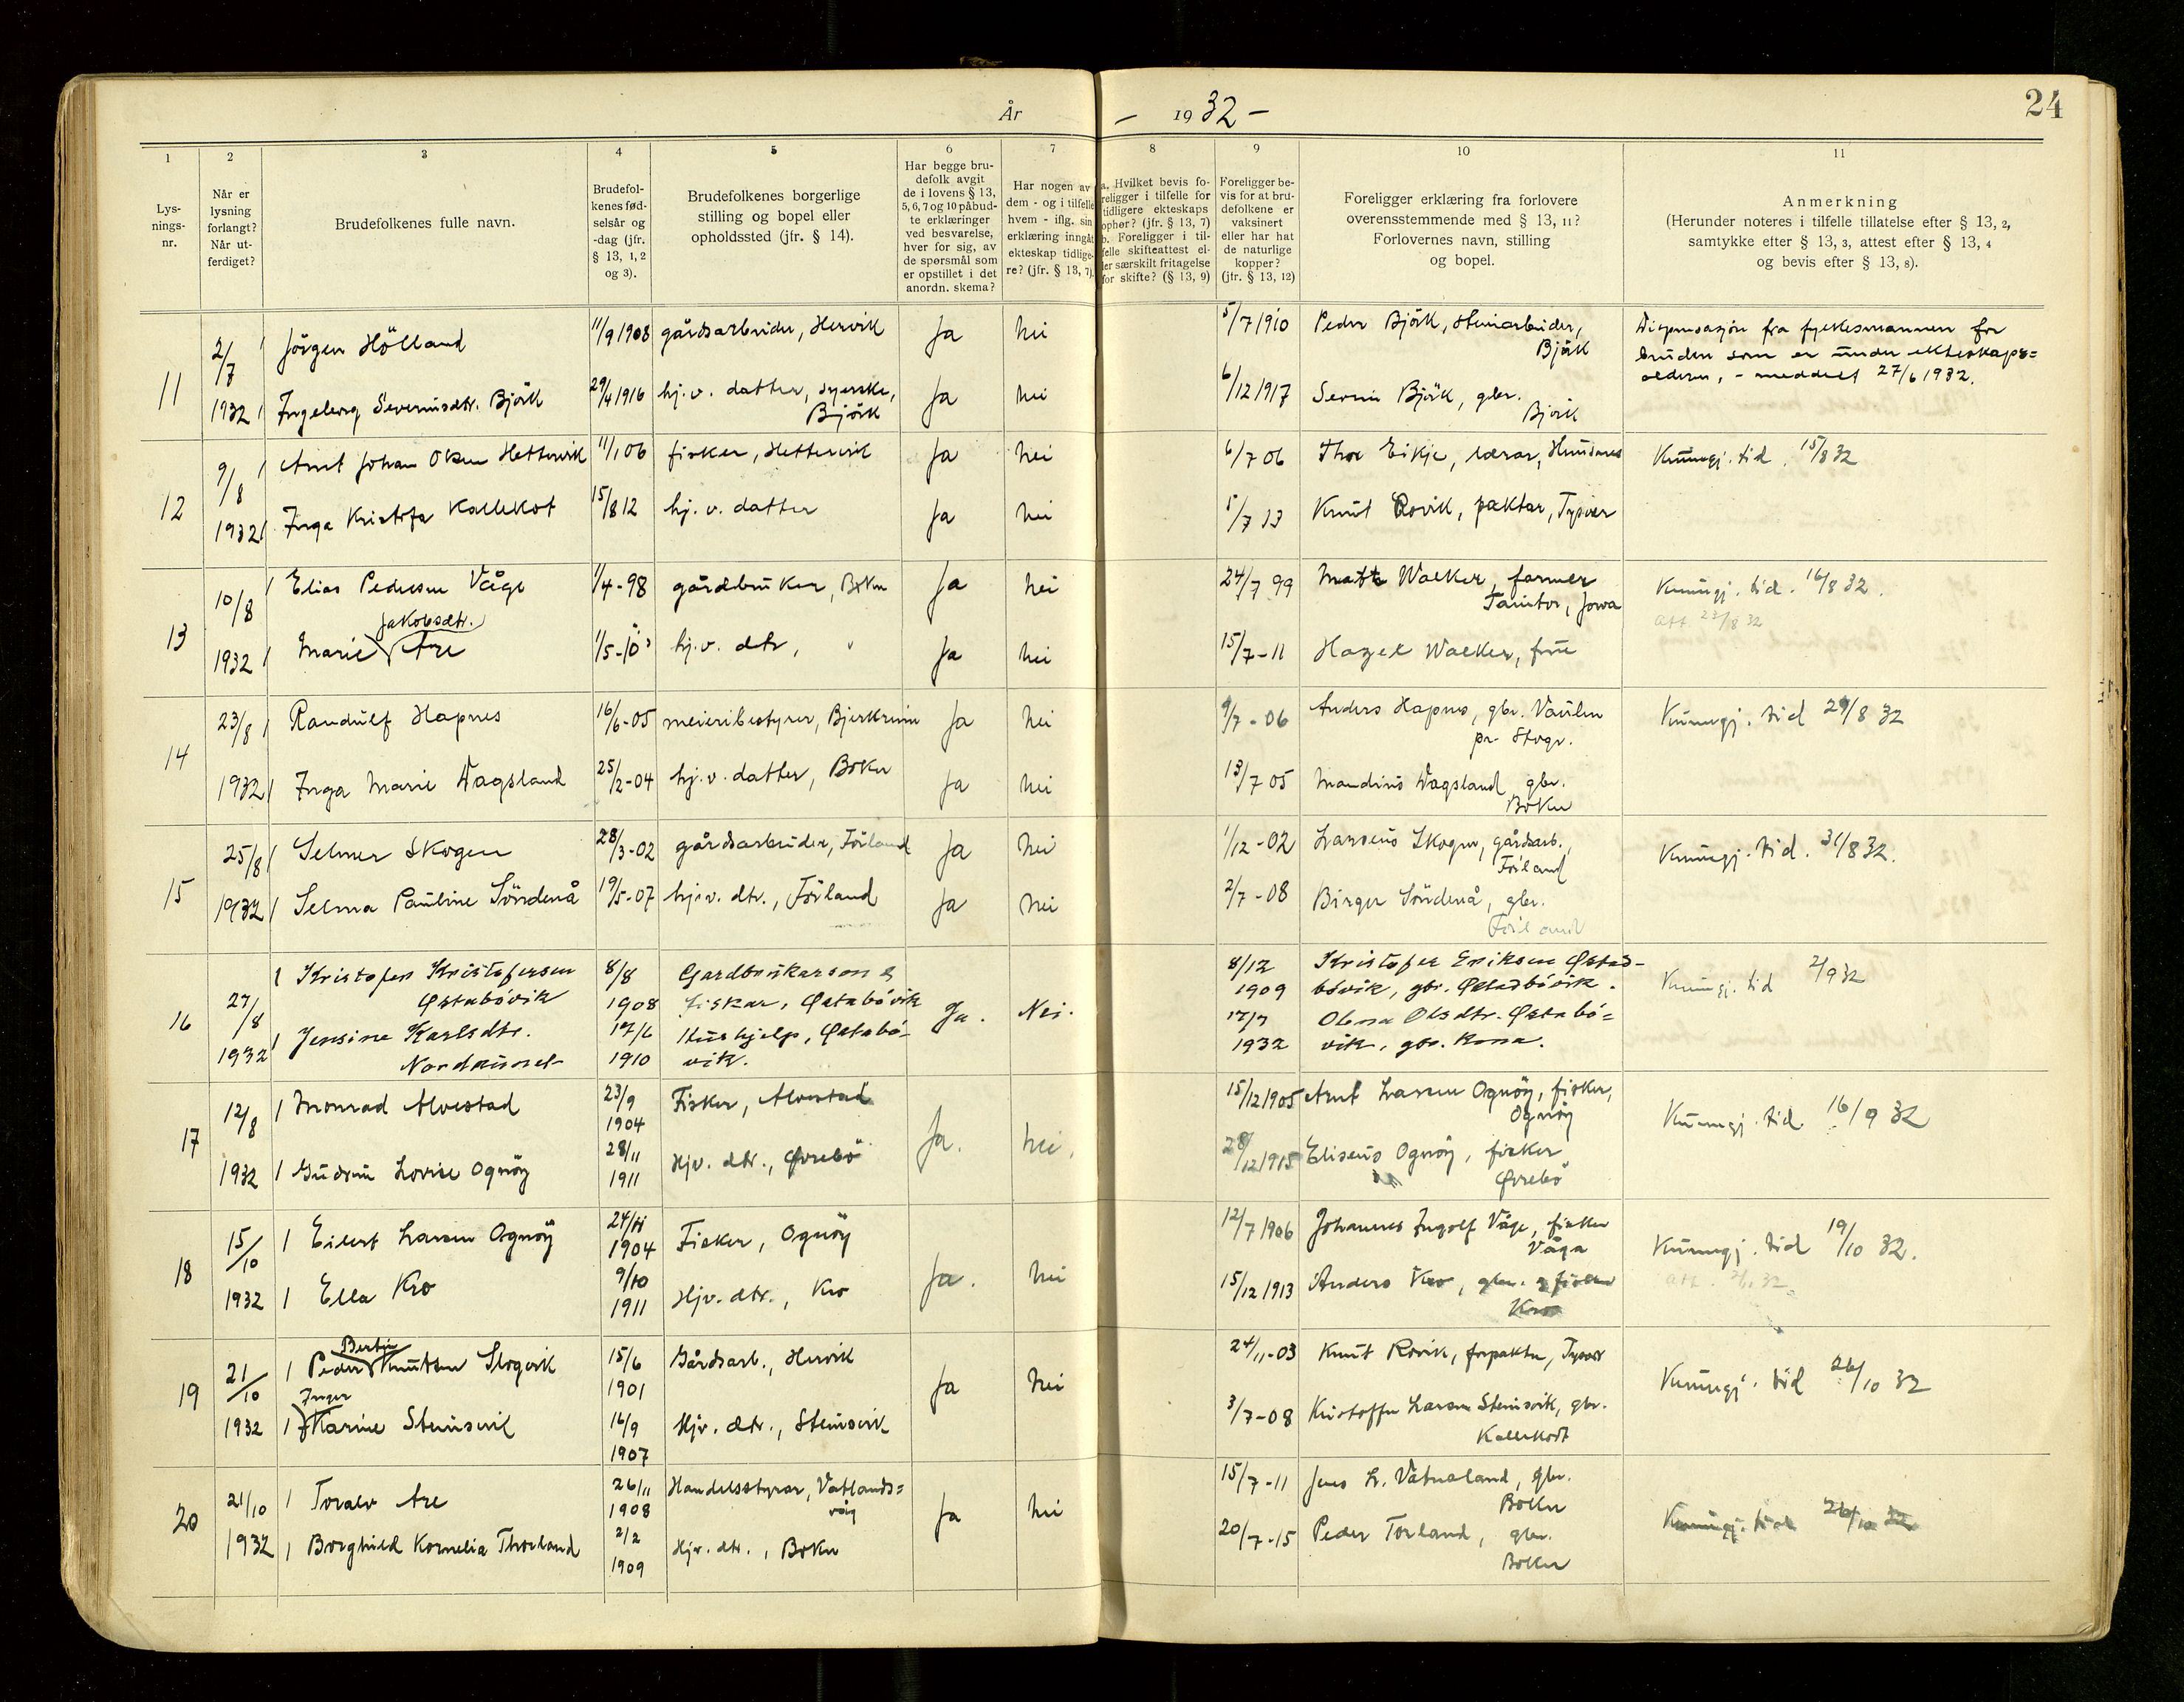 År — 1932 —
24
1
2
3
4
5
6
7
8
9
10
11
Lys-
nings-
nr.
Når er
lysning
forlangt?
Når ut-
ferdiget?
Brudefolkenes fulle navn.
Brudefol-
kenes fød-
selsår og
-dag (jfr.
§ 13, 1, 2
og 3).
Brudefolkenes borgerlige
stilling og bopel eller
opholdssted (jfr. § 14).
Har begge bru-
defolk avgit
de i lovens § 13,
5, 6, 7 og 10 påbud-
te erklæringer
ved besvarelse,
hver for sig, av
de spørsmål som
er opstillet i det
anordn. skema?
Har nogen av
dem - og i tilfelle
hvem - iflg. sin
erklæring inngåt
ekteskap tidlige-
re? (jfr. § 13, 7).
a. Hvilket bevis fo-
religger i tilfelle for
tidligere ekteskaps
ophør? (jfr. § 13, 7)
b. Foreligger i til-
felle skifteattest el-
ler særskilt fritagelse
for skifte? (§ 13, 9)
Foreligger be-
vis for at bru-
defolkene er
vaksinert
eller har hat
de naturlige
kopper?
(jfr. § 13, 12)
Foreligger erklæring fra forlovere
overensstemmende med § 13, 11?
Forlovernes navn, stilling
og bopel.
Anmerkning
(Herunder noteres i tilfelle tillatelse efter § 13, 2,
samtykke efter § 13, 3, attest efter § 13, 4
og bevis efter § 13, 8).
11
2/7
1932
Jörgen Hölland
11/9 1908
gårdsarbeider, Hervik
Ja
nei
5/7 1910
Peder Björk, steinarbeider,
Björk
Dispensasjon fra fylkesmannen for
bruden som er under ekteskaps=
alderen, - meddelt 27/6 1932.
Ingeborg Severinsdtr. Björk
29/4 1916
hj.v. datter, syerske,
Björk
Ja
nei
6/12 1917
Severin Björk, gbr.
Björk
12
9/8
1932
Arnt Johan Olsen Hettervik
11/1 06
fisker, Hettervik
Ja
nei
6/7 06
Thor Eikje, lærar,
Kunngj. tid. 15/8 32
Inga Kristofa Kallekot
15/8 12
hj. v. datter
Ja
nei
5/7 13
Knut Rovik, paktar, Tysvær
13
10/8
1932
Elias Pedersen Våge
1/4-98
gårdbruker, Bokn
Ja
nei
24/7 99
Matt Walker, farmer
Taintor, Jowa
Kunngj. tid. 16/8 32.
att 23/8 32
Jakobsdtr.
Marie Are
hj.v. dtr, "
Ja
nei
15/7-11
Hazel Walker, frue
14
23/8
1932
Randulf Hapnes
16/6-05
meieribestyrer, Bjerkreim
Ja
nei
9/7-06
Anders Hapnes, gbr. Vaulen
pr. Stvgr.
Kunngj. tid 29/8 32
Inga Marie Dagsland
25/2-04
hj.v. datter, Bokn
Ja
nei
13/7 05
Mandius Dagsland gbr.
Bokn
15
25/8
1932
Selmer Skogen
28/3-02
gårdsarbeider, Förland
Ja
nei
1/12-02
Larsens Skogen, gårdsarb.,
Förland
Kunngj. tid. 31/8 32.
Selma Pauline Söndenå
19/5-07
hj.v. dtr., Förland
Ja
nei
2/7-08
Birger Söndenå, gbr.
Förland
16
27/8
1932
Kristofer Kristofersen
Østabövik
8/8
1908
Gardbrukarson &
fiskar, Østabövik
Ja.
Nei.
8/12
1909
Kristofer Eriksen Østad-
bövik, gbr. Østadbövik.
Kunngj. tid 2/9 32
Jensine Karlsdtr.
17/6
1910
Hushjelp, Østabö-
vik.
17/7
1932
Olena Olsdtr. Østabö=
vik, gbr. kona.
17
12/8
1932
Monrad Alvestad
23/9
1904
Fisker, Alvestad
Ja.
nei.
15/12 1905
Arnt Larsen Ognöy, fisker,
Ognöy
Kunngj. tid. 16/9 32
Gudrun Lovise Ognöy
28/11
1911
Hjv. dtr., Øvrebö
28/12 1915
Eliseus Ognöy, fisker
Øvrebö
18
15/10
1932
Eilert Larsen Ognöy
24/11
1904
Fisker, Ognöy
Ja.
nei
12/7 1906
Johannes Ingolf Våge, fisker
Våga
Kunngj. tid 19/10 32.
Ella Kro
9/10
1911
Hjv. dtr., Kro
15/12 1913
Anders Kro, gbr. & fisker
Kro
19
21/10
1932
Bertin
Peder Knutsen Slogvik
15/6
1901
Gårdsarb., Hervik
Ja
nei
24/11-03
Knut Rovik, forpakter, Tysvær
Kunngj. tid 26/10 32
Inger
Karine Steinsvik
16/9
1907
Hjv. dtr., Steinsvik
3/7-08
Kristoffer Larsen Steinsvik, gbr.
Kallekodt
20
21/10
1932
Toralv Are
26/11
1908
Handelsstyrar, Vatlands=
våg
Ja
nei
15/7-11
Jens L. Våtneland, gbr.
Bokn
Kunngj. tid 26/10 32
Borghild Kornelia Thorland
2/2
1909
Hjv. dtr., Bokn
20/7-15
Peder Torland, gbr.
Bokn